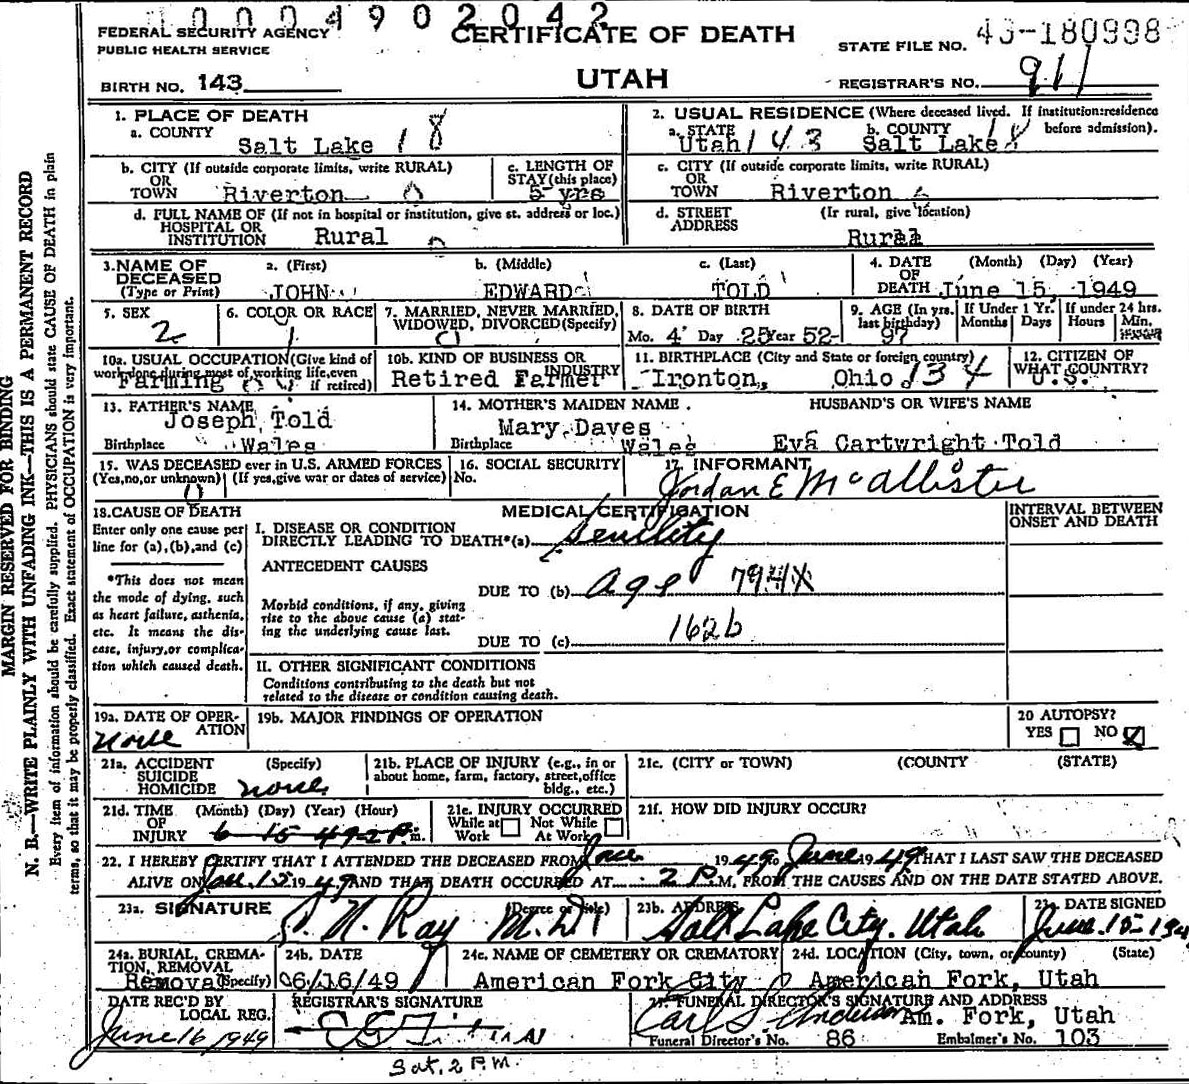 0004902042
FEDERAL SECURITY AGENCY
PUBLIC HEALTH SERVICE
CERTIFICATE OF DEATH
STATE FILE NO. 49-180998
BIRTH NO. 143
UTAH
REGISTRAR'S NO. 911
MARGIN RESERVED FOR BINDING
N. B.—WRITE PLAINLY WITH UNFADING INK—THIS IS A PERMANENT RECORD
Every item of information should be carefully supplied. PHYSICIANS should state CAUSE OF DEATH in plain
terms, so that it may be properly classified. Exact statement of OCCUPATION is very important.
1. PLACE OF DEATH
a. COUNTY
Salt Lake 18
2. USUAL RESIDENCE (Where deceased lived. If institution:residence
before admission).
a. STATE b. COUNTY
Utah 143 Salt Lake 18
b. CITY (If outside corporate limits, write RURAL)
OR
TOWN Riverton 0
c. LENGTH OF
STAY (this place)
5 yrs
c. CITY (If outside corporate limits, write RURAL)
OR
TOWN Riverton
d. FULL NAME OF (If not in hospital or institution, give st. address or loc.)
HOSPITAL OR
INSTITUTION Rural
d. STREET (If rural, give location)
ADDRESS
Rural
3. NAME OF
DECEASED
(Type or Print)
a. (First) b. (Middle) c. (Last)
JOHN EDWARD TOLD
4. DATE (Month) (Day) (Year)
OF
DEATH June 15, 1949
5. SEX
2
6. COLOR OR RACE
1
7. MARRIED, NEVER MARRIED,
WIDOWED, DIVORCED (Specify)
8. DATE OF BIRTH
Mo. 4 Day 25 Year 52
9. AGE (In yrs.
last birthday)
97
If Under 1 Yr.
Months Days
If under 24 hrs.
Hours Min.
10a. USUAL OCCUPATION (Give kind of
work done during most of working life, even
if retired)
Farming
10b. KIND OF BUSINESS OR
INDUSTRY
Retired Farmer
11. BIRTHPLACE (City and State or foreign country)
Ironton, Ohio. 134
12. CITIZEN OF
WHAT COUNTRY?
U.S.
13. FATHER'S NAME
Joseph Told
Birthplace Wales
14. MOTHER'S MAIDEN NAME
Mary Daves
Birthplace Wales
HUSBAND'S OR WIFE'S NAME
Eva Cartwright Told
15. WAS DECEASED ever in U.S. ARMED FORCES
(Yes, no, or unknown) (If yes, give war or dates of service)
0
16. SOCIAL SECURITY
No.
17. INFORMANT
Jordan E McAllister
18. CAUSE OF DEATH
Enter only one cause per
line for (a), (b), and (c)
*This does not mean
the mode of dying, such
as heart failure, asthenia,
etc. It means the dis-
ease, injury, or complica-
tion which caused death.
MEDICAL CERTIFICATION
INTERVAL BETWEEN
ONSET AND DEATH
I. DISEASE OR CONDITION
DIRECTLY LEADING TO DEATH*(a) Senility
ANTECEDENT CAUSES
DUE TO (b) Age 794X
Morbid conditions, if any, giving
rise to the above cause (a) stat-
ing the underlying cause last.
DUE TO (c) 162b
II. OTHER SIGNIFICANT CONDITIONS
Conditions contributing to the death but not
related to the disease or condition causing death.
19a. DATE OF OPER-
ATION
none
19b. MAJOR FINDINGS OF OPERATION
20 AUTOPSY?
YES NO X
21a. ACCIDENT (Specify)
SUICIDE
HOMICIDE none
21b. PLACE OF INJURY (e.g., in or
about home, farm, factory, street, office
bldg., etc.)
21c. (CITY or TOWN) (COUNTY) (STATE)
21d. TIME (Month) (Day) (Year) (Hour)
OF
INJURY 6 15 49 2 P.m.
21e. INJURY OCCURRED
While at Not While
Work At Work
21f. HOW DID INJURY OCCUR?
22. I HEREBY CERTIFY THAT I ATTENDED THE DECEASED FROM Jan 1949 TO June 1949 THAT I LAST SAW THE DECEASED
ALIVE ON Jan. 15 1949 AND THAT DEATH OCCURED AT 2 P.M, FROM THE CAUSES AND ON THE DATE STATED ABOVE.
23a. SIGNATURE (Degree or title)
N. Ray M.D.
23b. ADDRESS
Salt Lake City, Utah
23c. DATE SIGNED
June. 15-194
24a. BURIAL, CREMA-
TION, REMOVAL
Removal (Specify)
24b. DATE
06/16/49
24c. NAME OF CEMETERY OR CREMATORY
American Fork City
24d. LOCATION (City, town, or county) (State)
American Fork, Utah
DATE REC'D BY
LOCAL REG.
June 16 1949
REGISTRAR'S SIGNATURE
25. FUNERAL DIRECTOR'S SIGNATURE AND ADDRESS
Carl S Anderson Am. Fork, Utah
Funeral Director's No. 86 Embalmer's No. 103
Sat. 2 P.M.